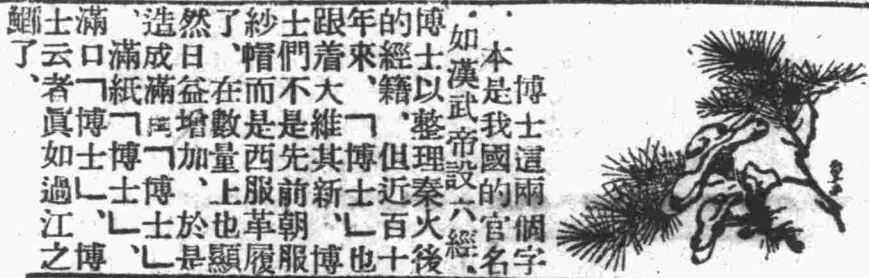 博士這兩個字
、本是我國的官名
、如漢武帝設六經、
博士以整理秦火後
的經籍、但近百十
年來、「博士」也
跟着大維其新、博
士們不是先前朝服
紗帽而是西服革履
了、在數量上也顯
然日益增加、於是
造成滿「博士」
、滿紙「博士」、
滿口「博士」、博
士云者眞如過江之
鯽了、